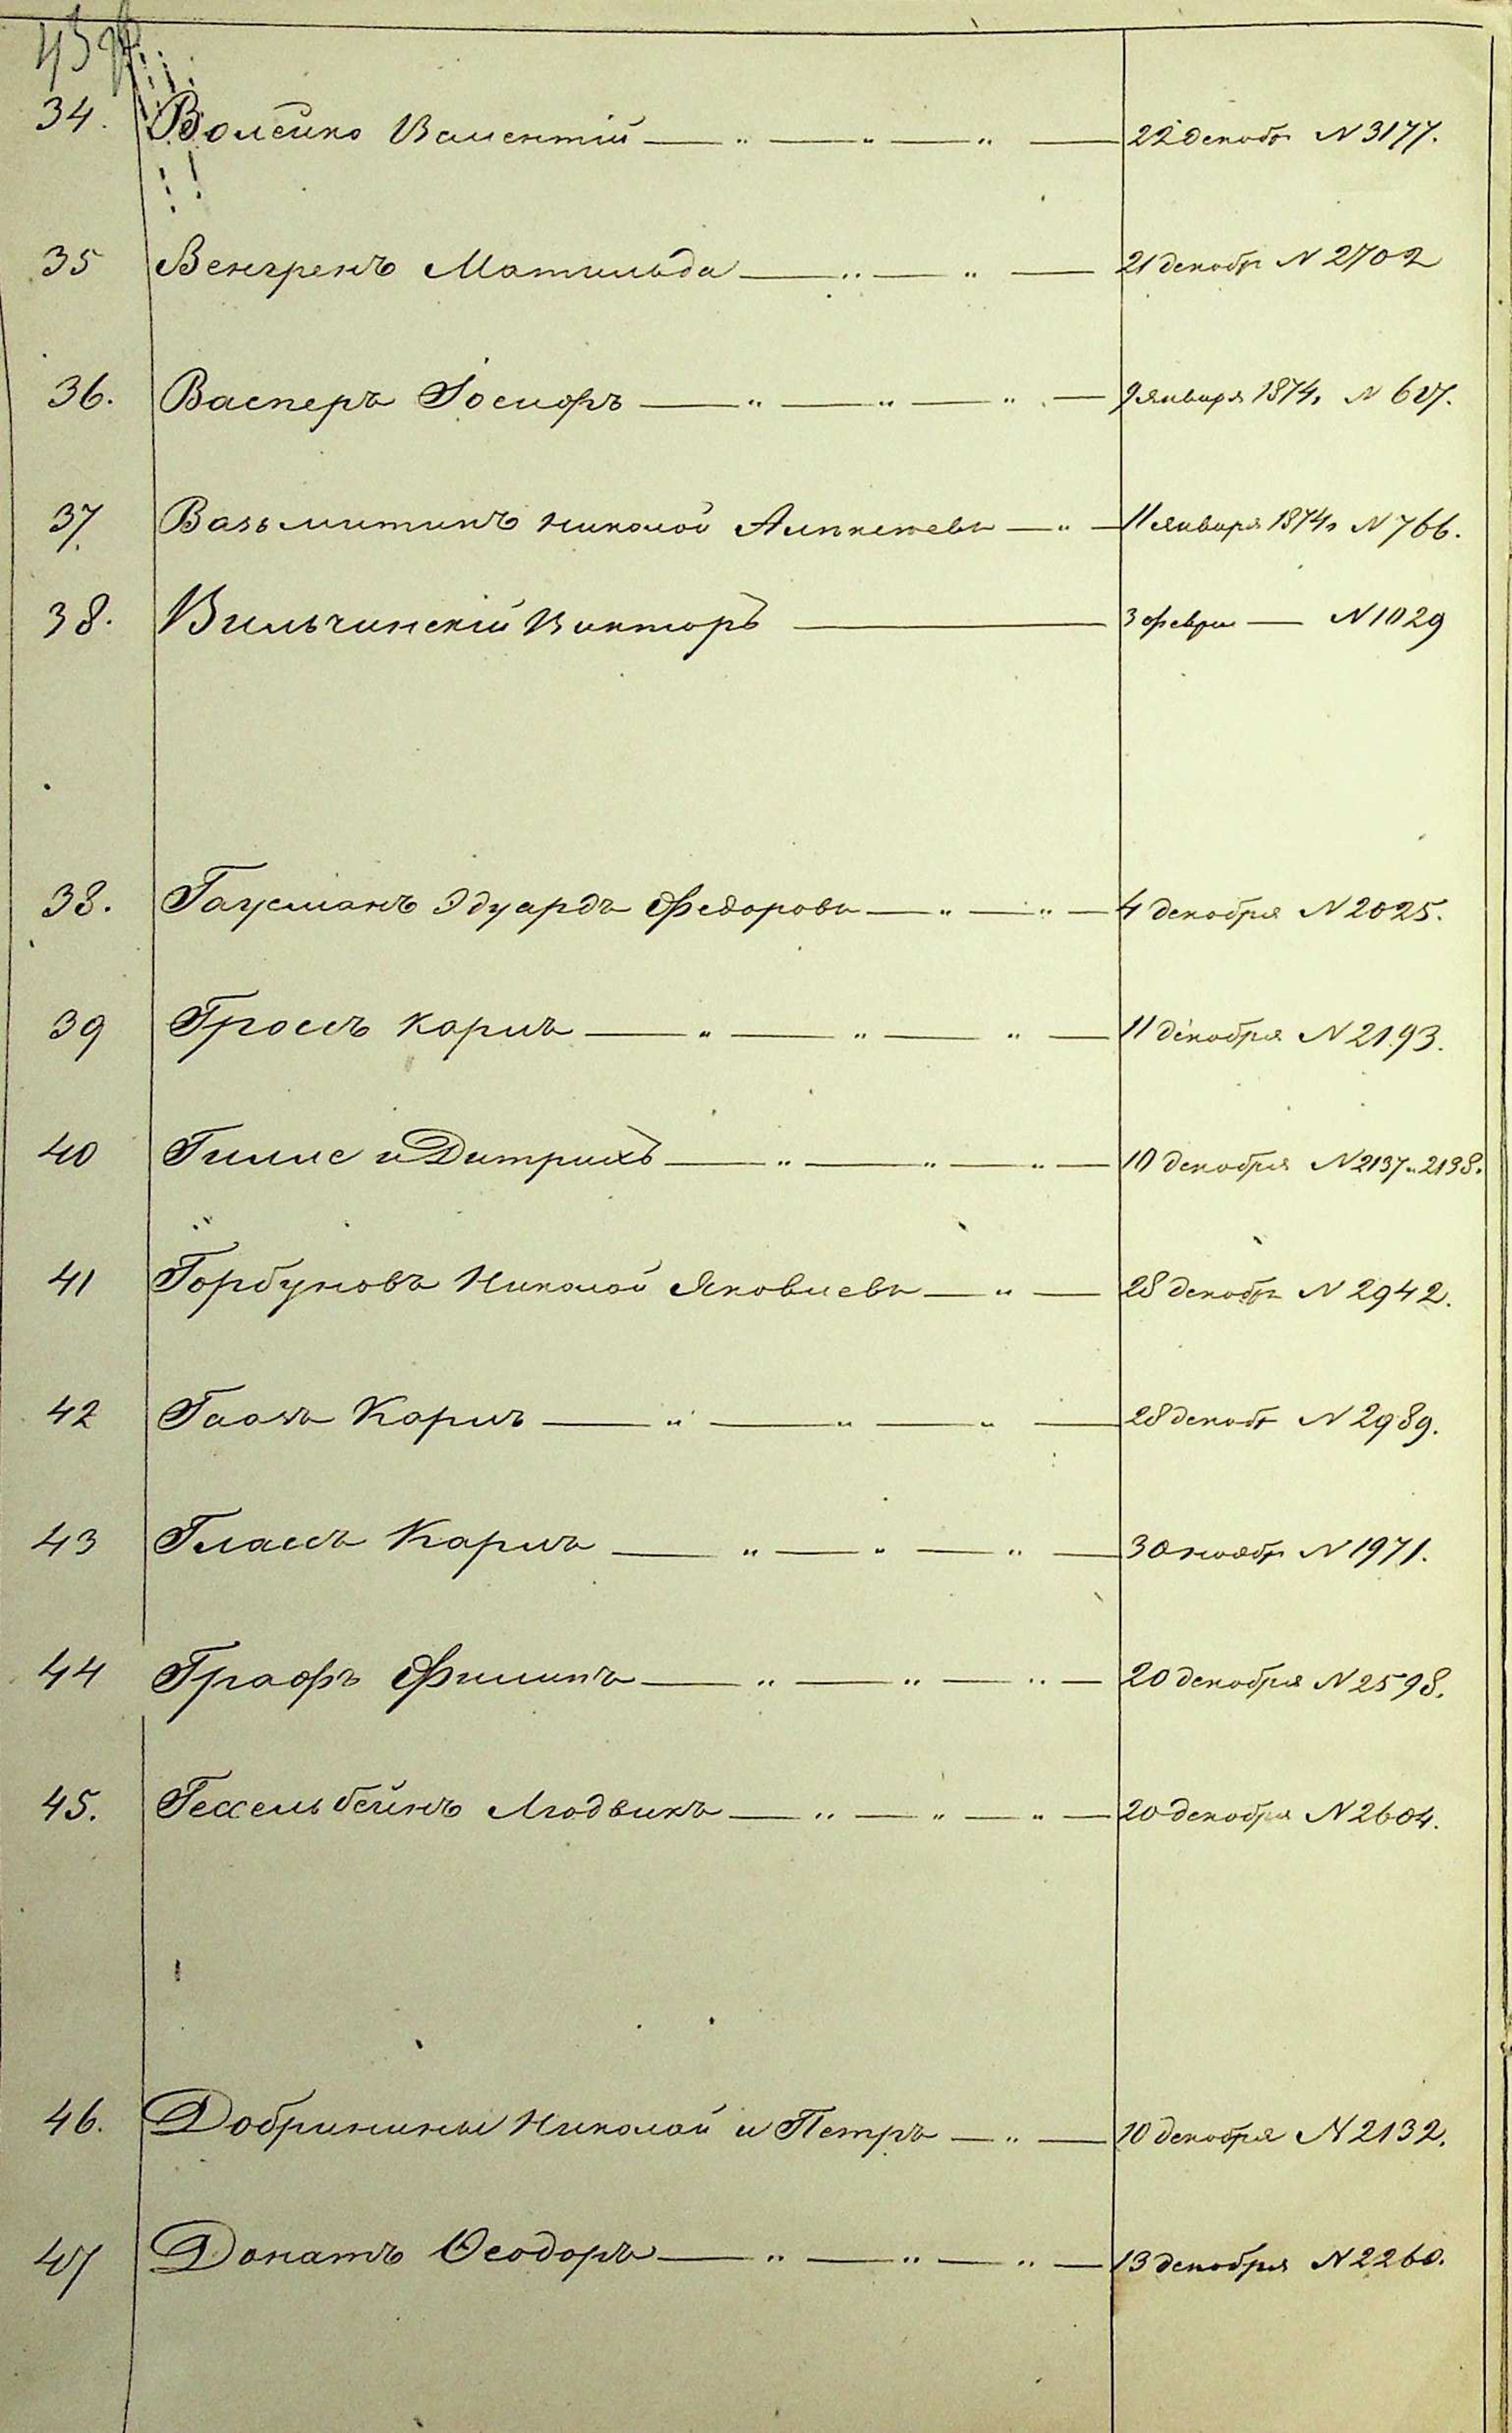 34. Волейко Валентій — " — " — " — 22 декабр N 3177.
35 Венгренъ Матильда — " — " — 21 декабр N 2702
36. Васперъ Іосифъ — " — " — " — 9 января 1874. N 627.
37. Вазьмитинъ Николай — " — 11 января 1874, N 766.
38. Вильчинскій Викторъ — 3 февра — N 1029
38. Гаусманъ Эдуардъ Федоровъ — " — " — 4 декабря N 2025.
39 Гроссъ Карлъ — " — " — " — 11 декабря N 2193.
40 Гилле и Дитрихъ — " — " — " — 10 декабря N 2137 и 2138.
41 Горбуновъ Николай Яковлевъ — " — 28 декабр N 2942.
42 Гаазъ Карлъ — " — " — " — 28 декабр N 2989.
43 Глассъ Карлъ — " — " — " — 30 ноябр N 1971.
44 Графъ Филипъ — " — " — " — 20 декабря N 2598.
45. Гессельбейнъ Людвикъ — " — " — " — 20 декабря N 2604.
46. Добринины Николай и Петръ — " — 10 декабря N 2132.
47 Донатъ Ѳеодоръ — " — " — " — 13 декабря N 2260.